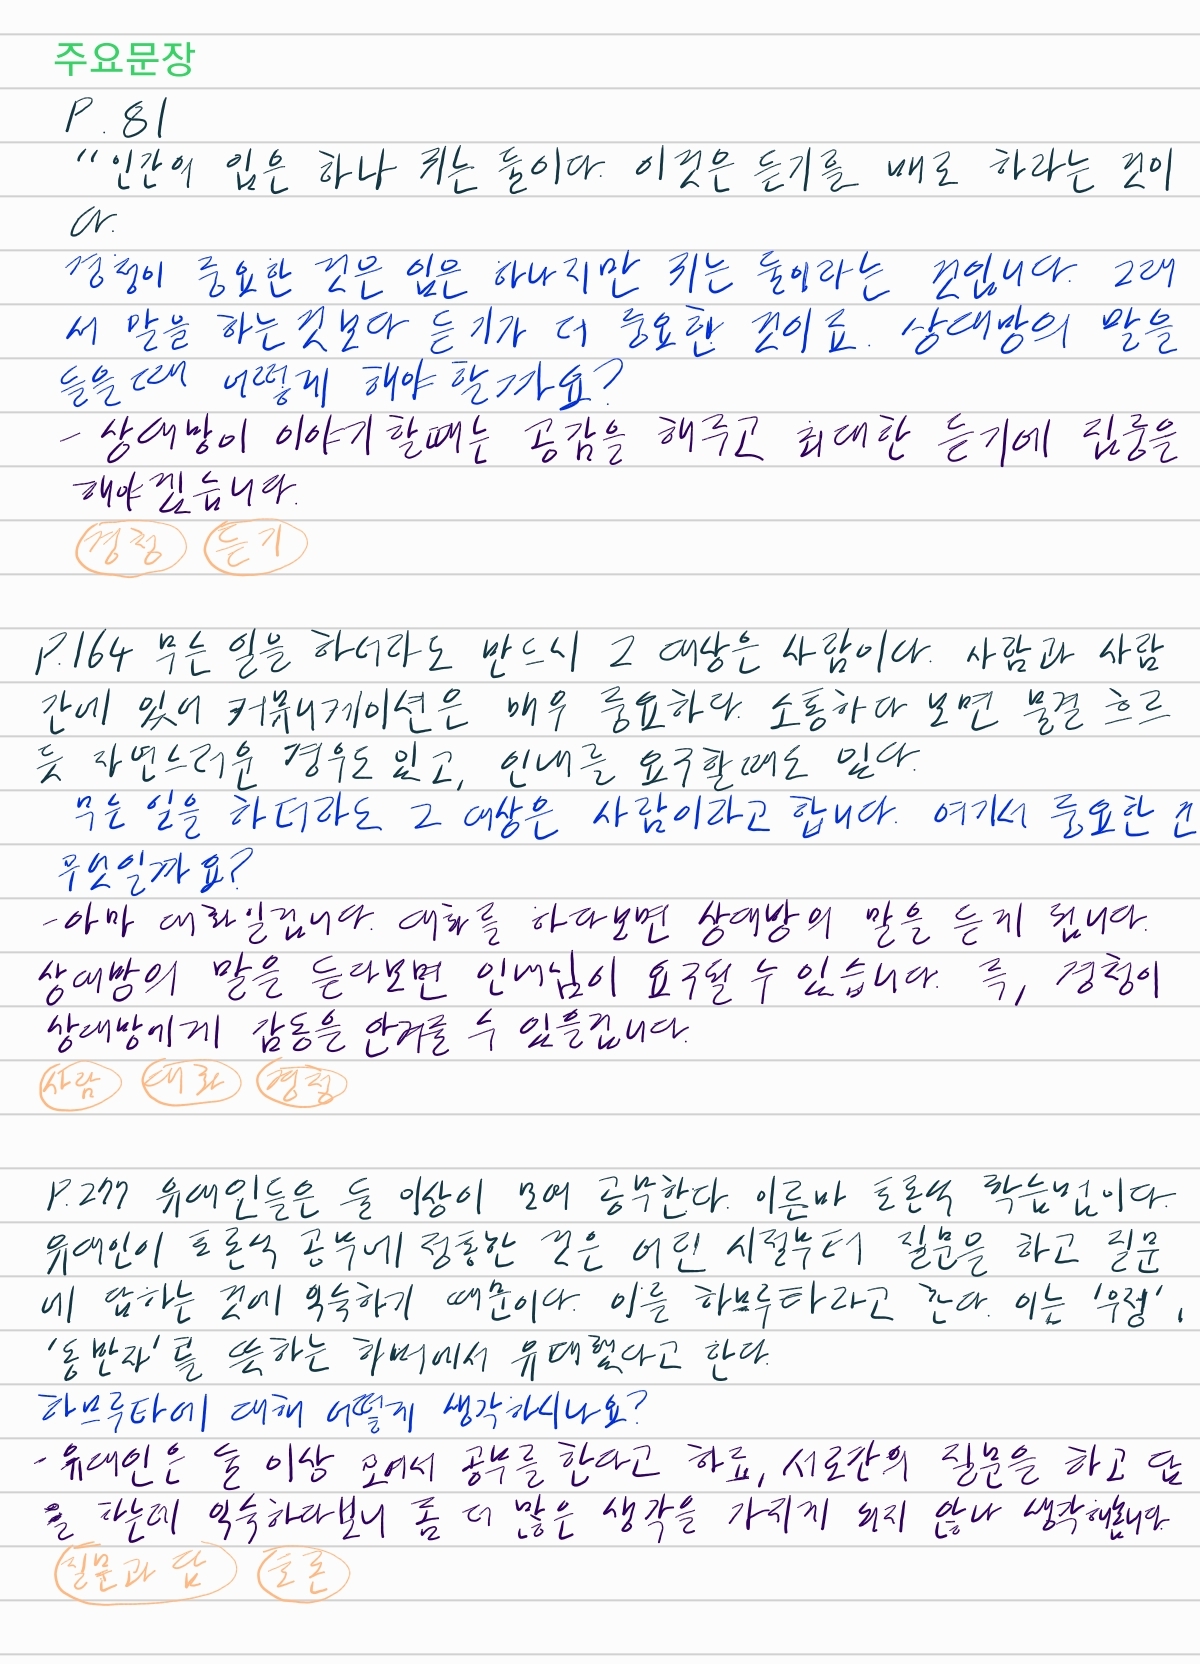 주요문장
P. 81
"인간의 입은 하나 귀는 둘이다. 이것은 듣기를 배로 하라는 것이
다.
경청이 중요한 것은 입은 하나지만 귀는 둘이라는 것입니다. 그래
서 말을 하는것보다 듣기가 더 중요한 것이죠. 상대방의 말을
들을때 어떻게 해야 할까요?
- 상대방이 이야기할때는 공감을 해주고 최대한 듣기에 집중을
해야겠습니다.
경청 듣기
P.164 무슨 일을 하더라도 반드시 그 대상은 사람이다. 사람과 사람
간에 있어 커뮤니케이션은 매우 중요하다. 소통하다 보면 물결 흐르
듯 자연스러운 경우도 있고, 인내를 요구할때도 있다.
무슨 일을 하더라도 그 대상은 사람이라고 합니다. 여기서 중요한 건
무엇일까요?
-아마 대화일겁니다. 대화를 하다보면 상대방의 말을 듣게 됩니다.
상대방의 말을 듣다보면 인내심이 요구될 수 있습니다. 즉, 경청이
상대방에게 감동을 안겨줄 수 있을겁니다.
사람 대화 경청
P.277 유대인들은 둘 이상이 모여 공부한다. 이른바 토론식 학습법이다.
유대인이 토론식 공부에 정통한 것은 어린 시절부터 질문을 하고 질문
에 답하는 것에 익숙하기 때문이다. 이를 하브루타라고 한다. 이는 '우정',
'동반자'를 뜻하는 하버에서 유래했다고 한다.
하브루타에 대해 어떻게 생각하시나요?
- 유대인은 둘 이상 모여서 공부를 한다고 하죠, 서로간의 질문을 하고 답
을 하는데 익숙하다보니 좀 더 많은 생각을 가지게 되지 않나 생각해봅니다.
질문과 답 토론